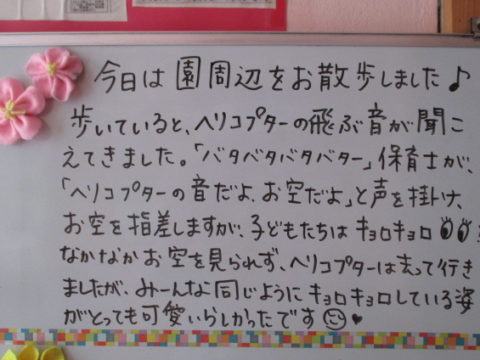 今日は園周辺をお散歩しました♪
歩いていると、ヘリコプターの飛ぶ音が聞こ
えてきました。「バタバタバタバター」保育士が、
「ヘリコプターの音だよ、お空だよ」と声を掛け、
お空を指差しますが、子どもたちはキョロキョロ
なかなかお空を見られず、ヘリコプターは去って行き
ましたが、みーんな同じようにキョロキョロしている姿
がとっても可愛いらしかったです